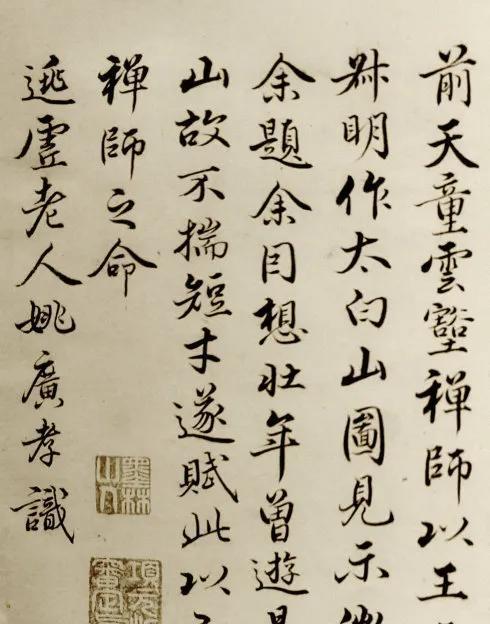 前天童雲壑禪師以王
叔明作太白山圖見示
余題余因想壯年曾遊
山故不揣短才遂賦此以
禪師之命
逃虛老人姚廣孝識
墨林山人